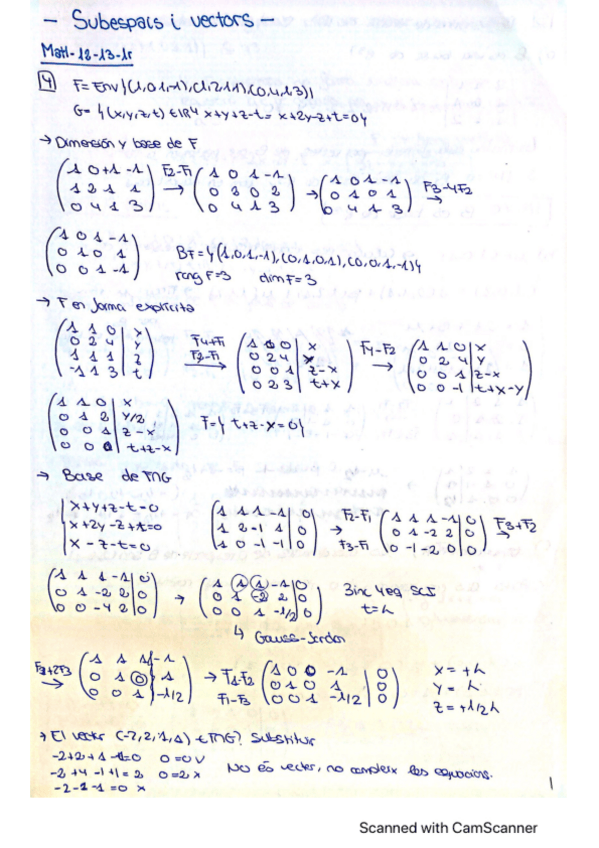 - Subespais i vectors -
Matl-12-13-1r
4 F=Env{(1,0,1,-1),(1,2,1,1),(0,4,1,3)}
G= {(x,y,z,t) ∈ IR4 x+y+z-t= x+2y-z+t=0}
→ Dimensión y base de F
(1 0 +1 -1 / 1 2 1 1 / 0 4 1 3) F2-F1 → (1 0 1 -1 / 0 2 0 2 / 0 4 1 3) → (1 0 1 -1 / 0 1 0 1 / 0 4 1 3) F3-4F2 →
(1 0 1 -1 / 0 1 0 1 / 0 0 1 -1) BF={(1,0,1,-1),(0,1,0,1),(0,0,1,-1)}
rang F=3 dim F=3
→ F en forma explícita
(1 1 0 | x / 0 2 4 | y / 1 1 1 | z / -1 1 3 | t) F4+F1 F3-F1 → (1 1 0 | x / 0 2 4 | y / 0 0 1 | z-x / 0 2 3 | t+x) F4-F2 → (1 1 0 | x / 0 2 4 | y / 0 0 1 | z-x / 0 0 -1 | t+x-y)
(1 1 0 | x / 0 1 2 | y/2 / 0 0 1 | z-x / 0 0 0 | t+z-x) F={ t+z-x=0}
→ Base de F∩G
x+y+z-t=0
x+2y-z+t=0
x-z-t=0
(1 1 1 -1 | 0 / 1 2 -1 1 | 0 / 1 0 -1 -1 | 0) F2-F1 F3-F1 → (1 1 1 -1 | 0 / 0 1 -2 2 | 0 / 0 -1 -2 0 | 0) F3+F2 →
(1 1 1 -1 | 0 / 0 1 -2 2 | 0 / 0 0 -4 2 | 0) → (1 1 1 -1 | 0 / 0 1 -2 2 | 0 / 0 0 1 -1/2 | 0) 3inc 4eq SCI
t=λ
↳ Gauss-Jordan
F2+2F3 → (1 1 1 -1 / 0 1 0 1 / 0 0 1 -1/2) → F1-F2 F1-F3 (1 0 0 -1 | 0 / 0 1 0 1 | 0 / 0 0 1 -1/2 | 0)
x = +λ
y = λ
z = +1/2λ
→ El vector (-2,2,1,1) ∈ F∩G? Substituir
-2+2+1-1=0 0=0 ✓
-2+4-1+1=2 0=2 x
-2-1-1=0 x
No és vector, no compleix les equacions.
1
Scanned with CamScanner